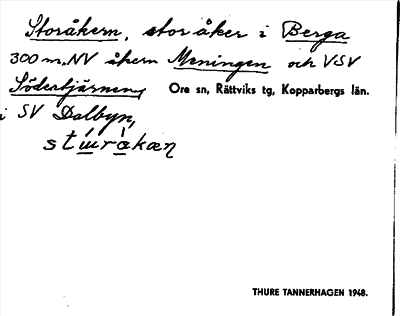 Storåkern, stor åker i Berga
300 m. NV åkern Meningen och VSV
Södertjärnen, Ore sn, Rättviks tg, Kopparbergs län.
i SV Dalbyn,
THURE TANNERHAGEN 1948.